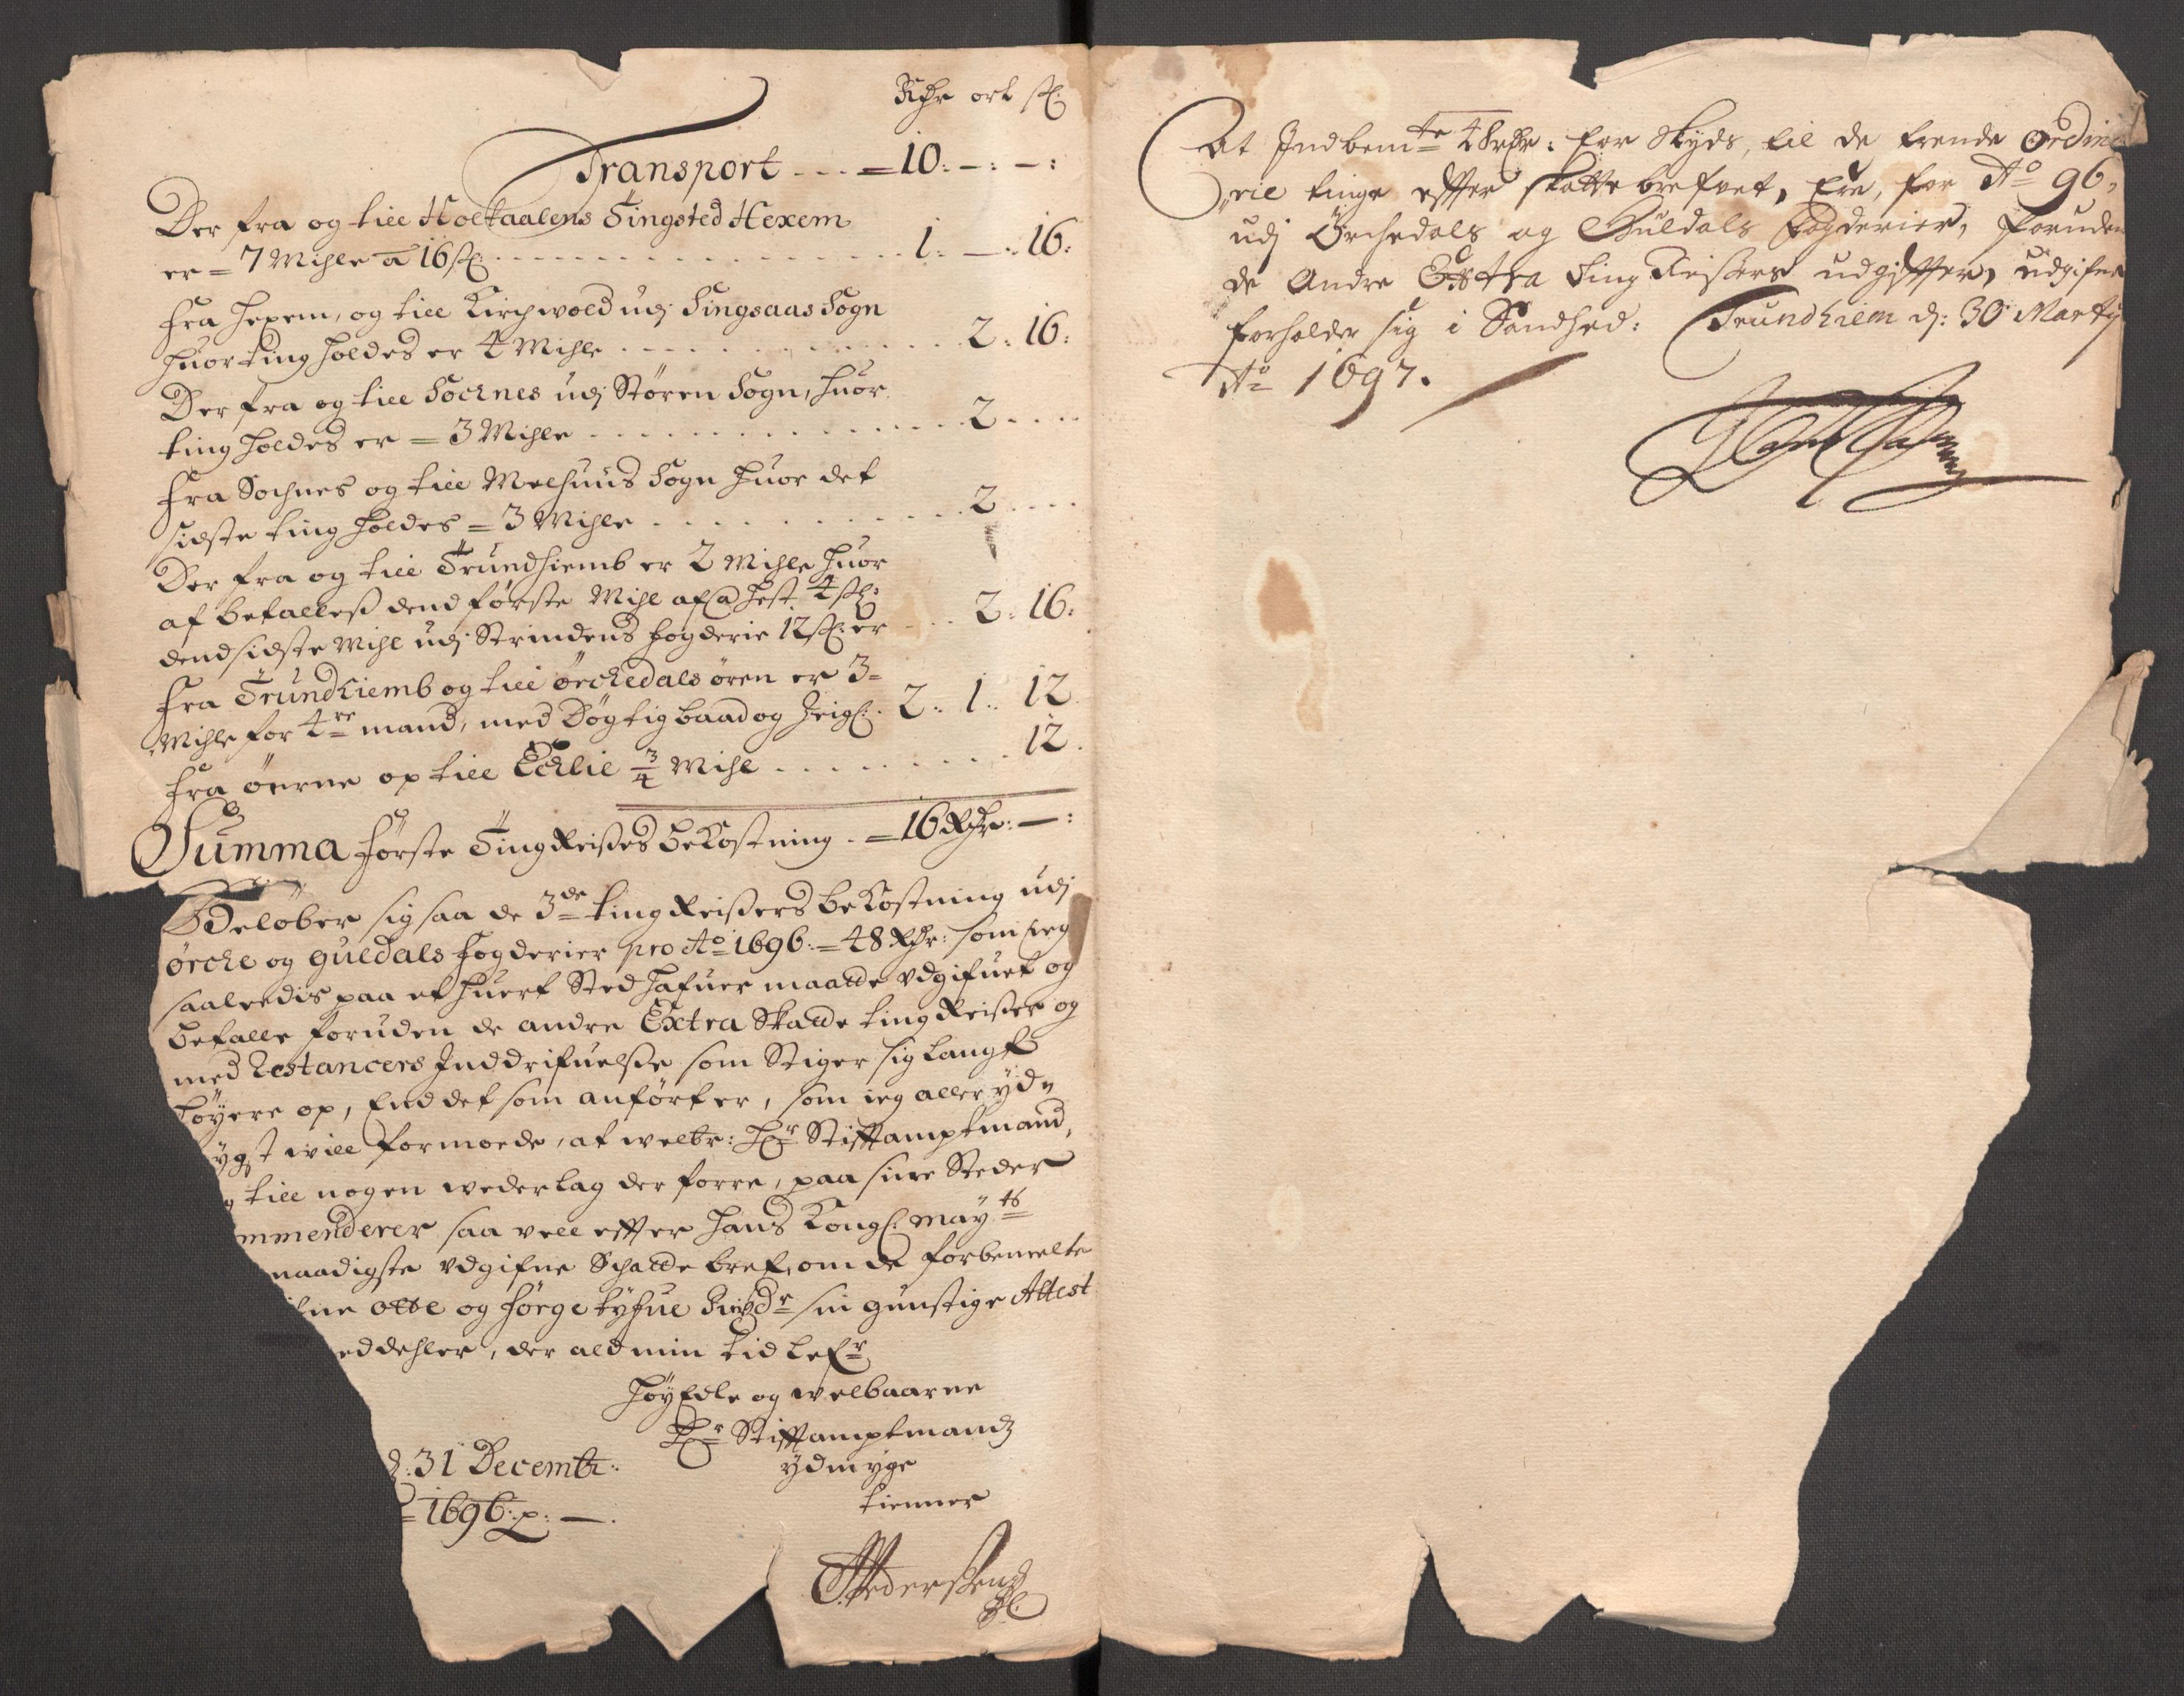 Rdr ort sz
Transport - - - = 10: - : - :
Der fra og till Holtaalens Tingsted Hexem
er = 7 Mihle a 16 sz. 1: — : 16:
Fra Hexem, og till Kirchwold udj Singsaas Sogn
huor ting holdes er 4 Mihle 2: 16:
Der fra og till Sochnes udj Støren Sogn, huor
ting holdes er = 3 Mihle 2
Fra Sochnes og till Melhuus Sogn huor det
sidste ting holdes = 3 Mihle 2
Der fra og till Trundhiemb er 2 Mihle huor
af betalles dend første Mihl af a hest 4 sz:
dend sidste Mihl udj Strindens fogderie 12 sz: er 2: 16:
Fra Trundhiemb og till ørchedals øren er 3=
Mihle for 4re mand, med Døgtig baad og 2: 1: 12
Fra øerne op till Echlie 3/4 Mihl 12.
Summa Første Ting Reises bekostning = 16 Rdr: — :
Beløber sig saa de 3de ting Reisers bekostning udj
ørche og guldals fogderier pro Ao 1696: = 48 Rdr: som ieg
saaledis paa et huert Sted hafuer maatte vdgifuet og
betalle foruden de andre Extra Skatte ting Reiser og
med Restancers Inddrifuelse som Stiger sig langt
høyere op, End det som anført er, som ieg aller ydm
ygst will formode, at welbr: Hr Stiftamptmand,
till nogen wederlag der forre, paa sine Steder
mmenderer saa vell effter Hans Kongl: mayts
naadigste vdgifne Schatte bref, om de forbemelte
otte og førgetyfue sin gunstige Attest
eddehler, der ald min tid lefr
Høy Edle og welbaarne
Hr Stiftamptmandz
ydmyge
tienner
d: 31 Decembr:
= 1696: p: — .
Pedersen
At Indbemte 48 rdr: for skyds, til de trende Ordina
rie tinge effter skatte brefvet, Ere, for Ao 96,
udj Örchedals og Guldals fogderier, foruden
de Andre Extra ting Reisers udgiffter, udgifne
forholder sig i Sandhed: Trundhiem d: 30 Martij
Ao 1697.